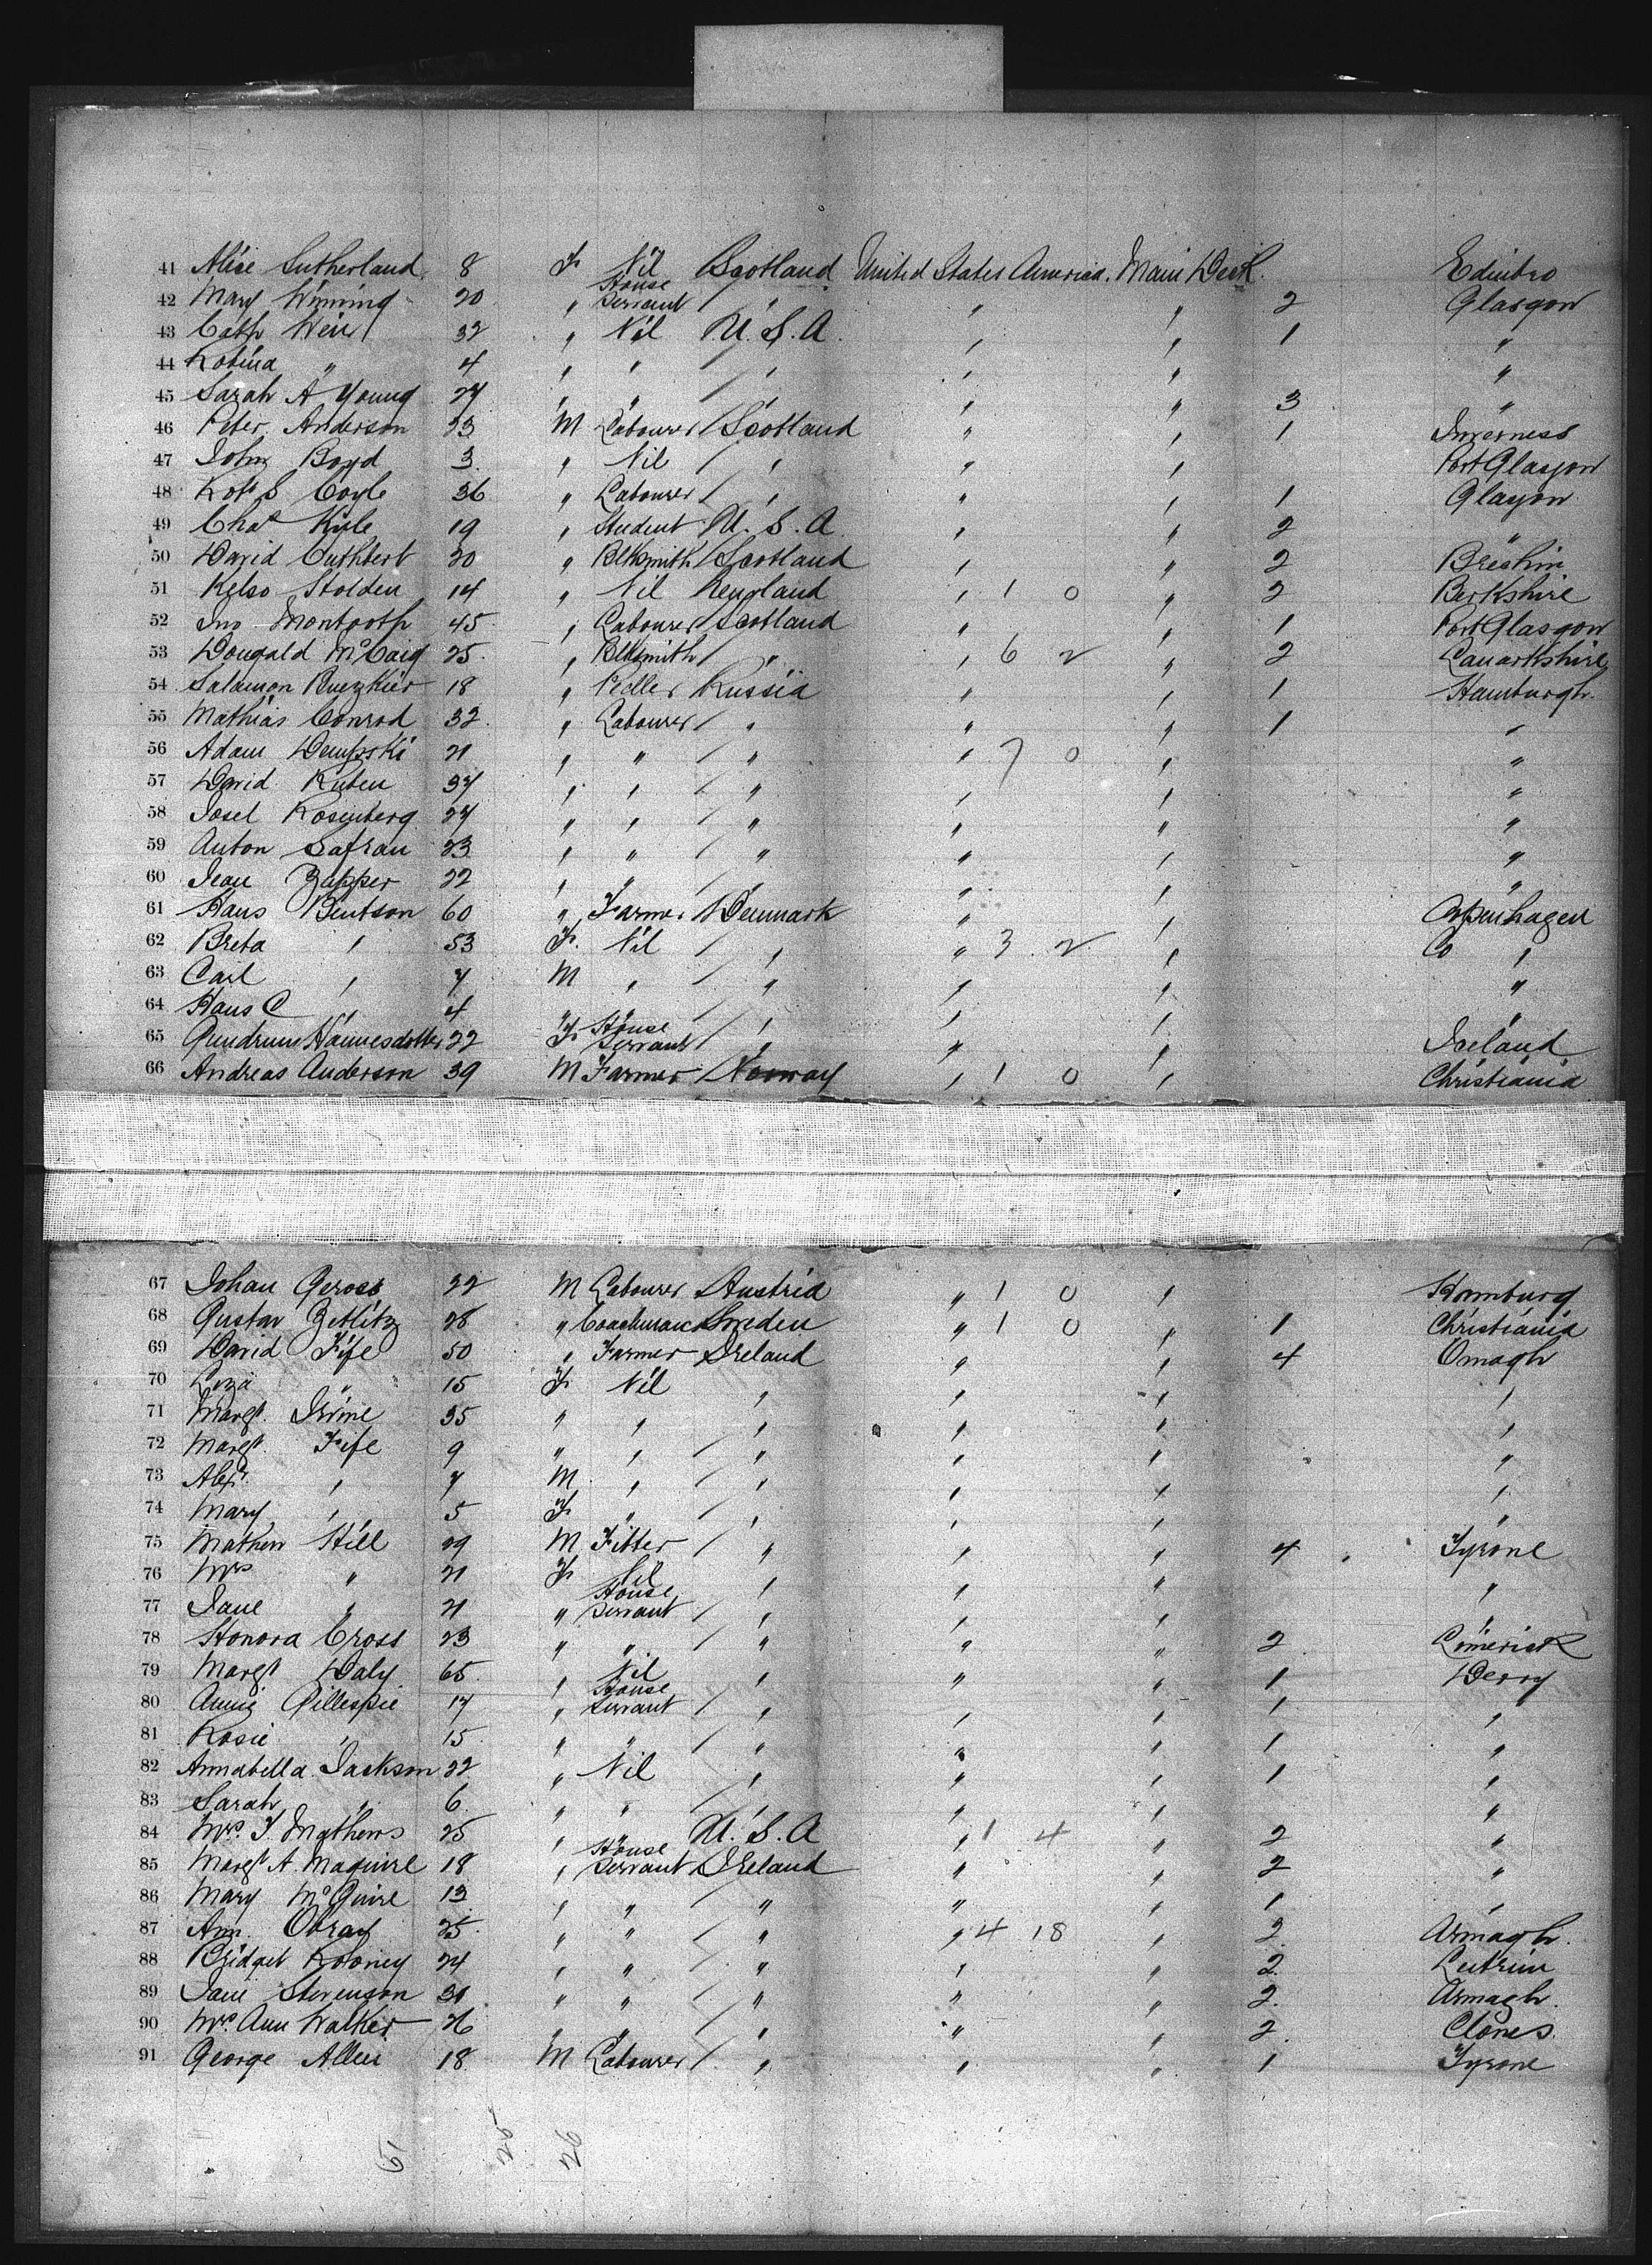 41 Alice Sutherland 8 F Nil Scotland United States America. Main Deck. Edinbro
42 Mary Winning 20 " House Servant " " " 2 Glasgow
43 Cath Weir 32 " Nil U.S.A. " " 1 "
44 Robina " 4 " " " " " "
45 Sarah A Young 24 " " " " " 3 "
46 Peter Anderson 23 M Labourer Scotland " " 1 Inverness
47 John Boyd 3 " Nil " " " Port Glasgow
48 Robt S Coyle 36 " Labourer " " " 1 Glasgow
49 Chas Kyle 19 " Student U.S.A " " 2 "
50 David Cuthbert 20 " Blksmith Scotland " " 2 Breshin
51 Kelso Holden 14 " Nil England " 1 0 " 2 Berkshire
52 Jno Montooth 45 " Labourer Scotland " " 1 Port Glasgow
53 Dougald McCaig 25 " Blksmith " " 6 2 " 2 Lanarkshire
54 Salamon 18 " Pedler Russia " " 1 Hamburgh.
55 Mathias Conrod 32 " Labourer " " " 1 "
56 Adam Dempski 21 " " " " 7 0 " "
57 David Ruben 37 " " " " " "
58 Josel Rosenberg 24 " " " " " "
59 Anton Safran 23 " " " " " "
60 Jean Zapper 22 " " " " " "
61 Hans Bentson 60 " Farmer Denmark " " Copenhagen
62 Breta " 53 F. Nil " " 3 2 " Co "
63 Carl " 7 M " " " " "
64 Hans C " 4 " " " " " "
65 Gundrun Hannesdotter 22 F House Servant " " " Iceland
66 Andreas Anderson 39 M Farmer Norway " 1 0 " Christiania
67 Johan Geross 22 M Labourer Austria " 1 0 " Hamburg
68 Gustav Zetlitz 28 " Coachman Sweden " 1 0 " 1 Christiania
69 David Fife 50 " Farmer Ireland " " 4 Omagh
70 Liza " 15 F Nil " " " "
71 Margt. Irvine 35 " " " " " "
72 Margt. Fife 9 " " " " " "
73 Alexr. " 7 M " " " " "
74 Mary " 5 F " " " " "
75 Mathew Hill 29 M Fitter " " " 4 Tyrone
76 Mrs " 21 F Nil " " " "
77 Jane " 21 " House Servant " " " "
78 Honora Cross 23 " " " " " 2 Limerick
79 Margt Daly 65 " Nil " " " 1 Derry
80 Annie Gillespie 17 " House Servant " " " 1 "
81 Rosie " 15 " " " " " 1 "
82 Annabella Jackson 22 " Nil " " " 1 "
83 Sarah " 6 " " " " " "
84 Mrs. J. Mathews 25 " U.S.A " 1 4 " 2 "
85 Margt A. Maguire 18 " House Servant Ireland " " 2 "
86 Mary McGuire 13 " " " " " 1 "
87 Ann Obray 25 " " " " 4 18 " 2 Armagh.
88 Bridget Rooney 24 " " " " " 2 Leitrim
89 Jane Stevenson 30 " " " " " 2. Armagh.
90 Mrs. Ann Walker 26 " " " " " 2. Clones
91 George Allen 18 M Labourer " " " 1 Tyrone
51 25 26